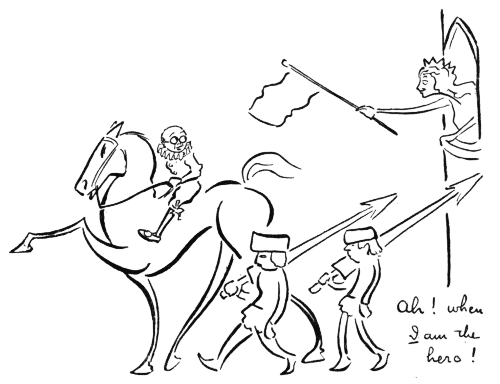 Ah! when
I am the
hero!